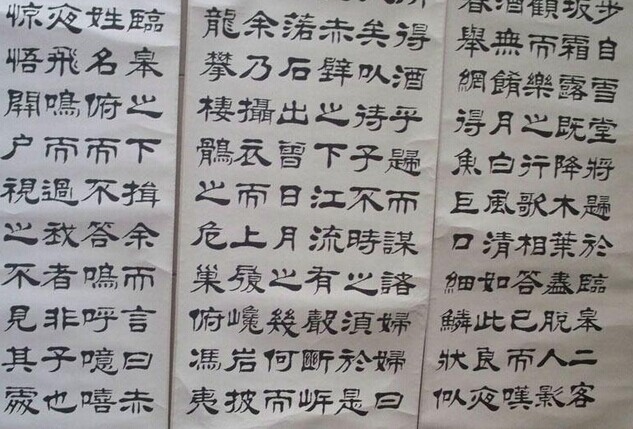 步自雪堂將歸於臨皋二客
坂霜露既降木葉盡脫人影
顧而樂之行歌相答已而嘆
酒無餚月白風清如此良夜
舉網得魚巨口細鱗狀似
所得酒乎歸而謀諸婦婦曰
矣以待子不時之須於是
赤壁之下江流有聲斷岸
落石出曾日月之幾何而
余乃攝衣而上履巉岩披
龍攀棲鶻之危巢俯馮夷
臨皋之下揖余而言曰赤
姓名俯而不答嗚呼噫嘻
夜飛鳴而過我者非子也
惊悟開戶視之不見其處